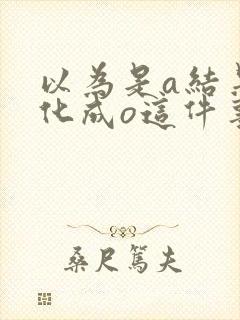 以為是a結
化成o這件
桑尺篤夫